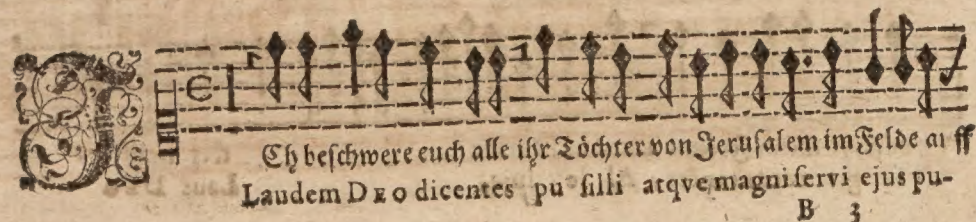 ICh beschwere euch alle ihr Töchter von Jerusalem im Felde
Laudem DEO dicentes pu silli atqve magni servi ejus pu-
B 3